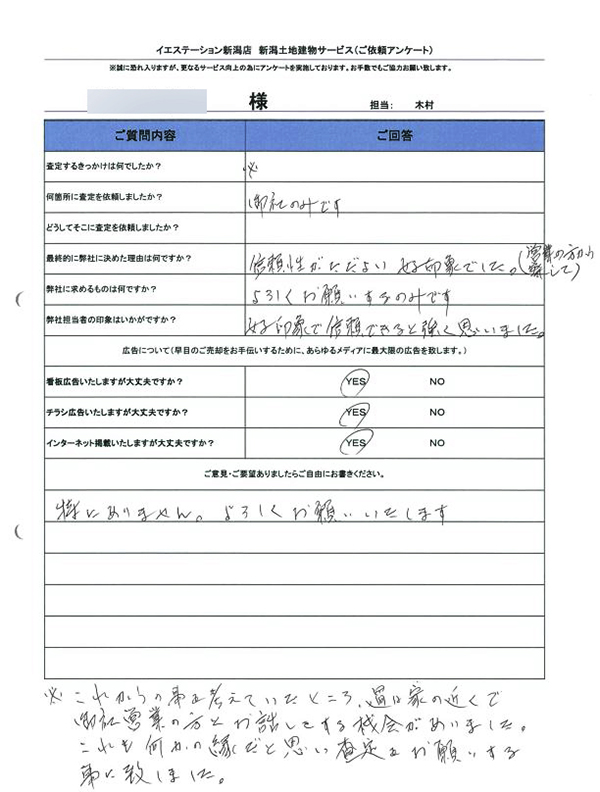 イエステーション新潟店 新潟土地建物サービス(ご依頼アンケート)
※誠に恐れ入りますが、更なるサービス向上の為にアンケートを実施しております。お手数でもご協力お願い致します。
様 担当: 木村
ご質問内容 ご回答
査定するきっかけは何でしたか? ※
何箇所に査定を依頼しましたか? 御社のみです
どうしてそこに査定を依頼しましたか?
最終的に弊社に決めた理由は何ですか? 信頼性がただよい 好印象でした。(営業の方から察して)
弊社に求めるものは何ですか? よろしくお願いするのみです
弊社担当者の印象はいかがですか? 好印象で信頼できると強く思いました。
広告について(早目のご売却をお手伝いするために、あらゆるメディアに最大限の広告を致します。)
看板広告いたしますが大丈夫ですか? YES NO
チラシ広告いたしますが大丈夫ですか? YES NO
インターネット掲載いたしますが大丈夫ですか? YES NO
ご意見・ご要望ありましたらご自由にお書きください。
特にありません。よろしくお願いいたします
※これからの事を考えていたところ、家の近くで
御社営業の方とお話しをする機会がありました。
これも何かの縁だと思い査定をお願いする
事に致しました。